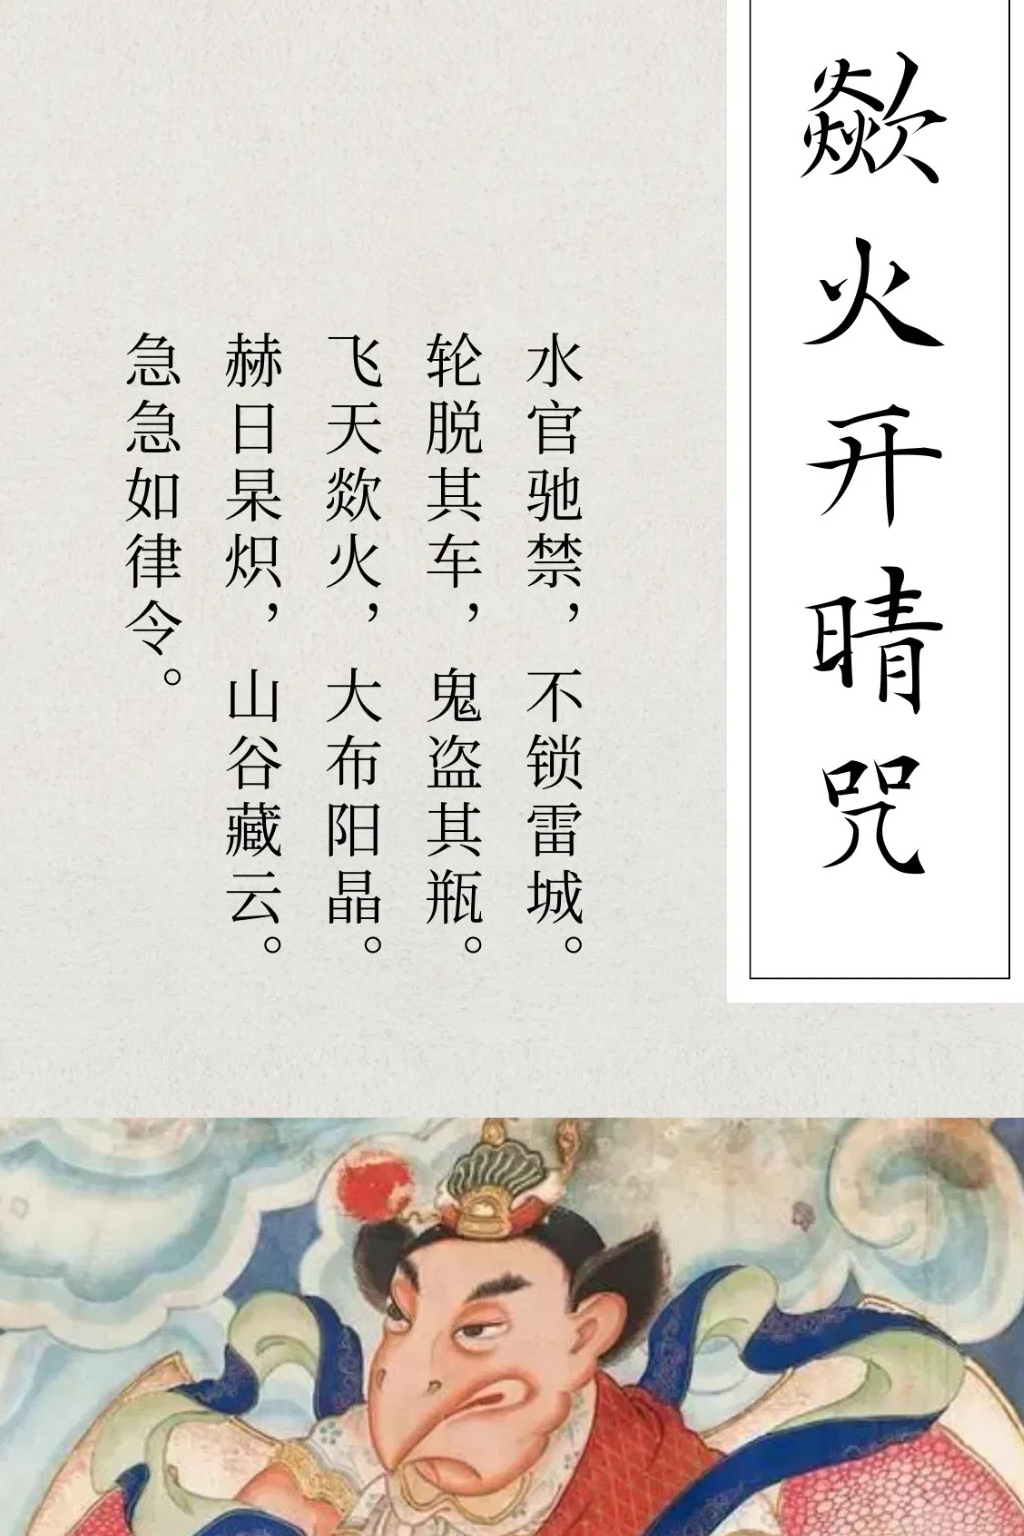 歘火开晴咒
水官驰禁，不锁雷城。
轮脱其车，鬼盗其瓶。
飞天欻火，大布阳晶。
赫日杲炽，山谷藏云。
急急如律令。